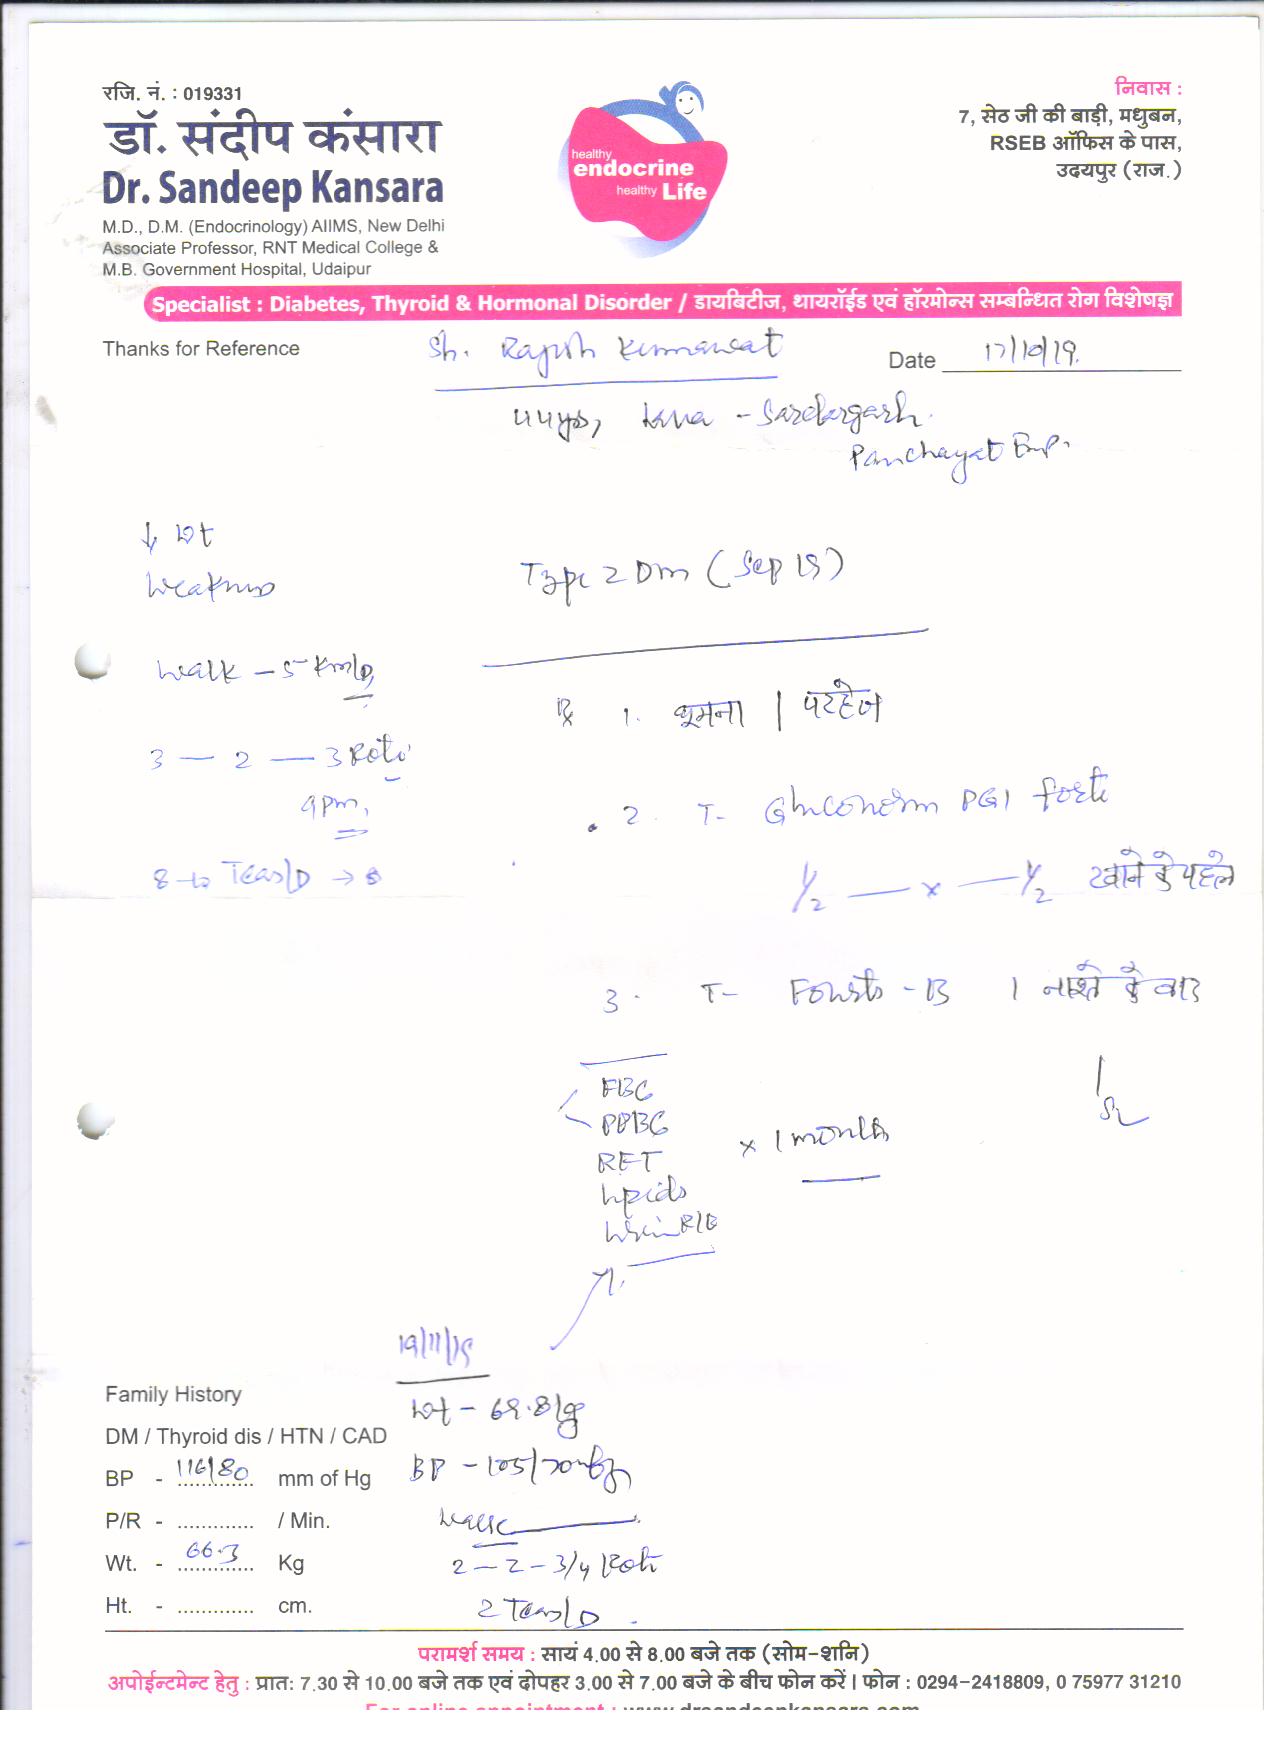 रजि. नं. : 019331
डॉ. संदीप कंसारा
Dr. Sandeep Kansara
M.D., D.M. (Endocrinology) AIIMS, New Delhi
Associate Professor, RNT Medical College &
M.B. Government Hospital, Udaipur
healthy
endocrine
healthy Life
निवास :
7, सेठ जी की बाड़ी, मधुबन,
RSEB ऑफिस के पास,
उदयपुर (राज.)
Specialist : Diabetes, Thyroid & Hormonal Disorder / डायबिटीज, थायरॉईड एवं हॉरमोन्स सम्बन्धित रोग विशेषज्ञ
Thanks for Reference
Sh. Rajesh Kumawat
Date 17/10/19.
44yrs, - Sardargarh.
Panchayat Emp.
↓ Wt
Weakness
Type 2 DM (Sep 19)
Walk - 5 Km/D,
Rx 1. घूमना | परहेज
3 — 2 — 3 Roti
9pm,
2. T- Gluconorm PG1 forte
8-10 Teas/D →
1/2 — x — 1/2 खाने के पहले
3. T- - B 1 नाश्ते के बाद
FBG
PPBG
RFT
Lipids
Urine R/E
x 1 month
19/11/19
Wt - 69.8 kg
BP - 105/70 mmHg
Walk
2 — 2 - 3/4 Roti
2 Teas/D
Family History
DM / Thyroid dis / HTN / CAD
BP - 116/80 mm of Hg
P/R - ............. / Min.
Wt. - 66.3 Kg
Ht. - ............. cm.
परामर्श समय : सायं 4.00 से 8.00 बजे तक (सोम-शनि)
अपोईन्टमेन्ट हेतु : प्रात: 7.30 से 10.00 बजे तक एवं दोपहर 3.00 से 7.00 बजे के बीच फोन करें । फोन : 0294-2418809, 0 75977 31210
For online appointment : www.drsandeepkansara.com